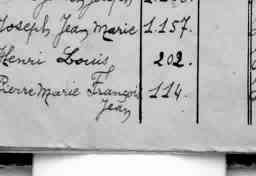 Joseph Jean Marie 1.157.
Henri Louis 202.
Pierre Marie François 114.
Jean